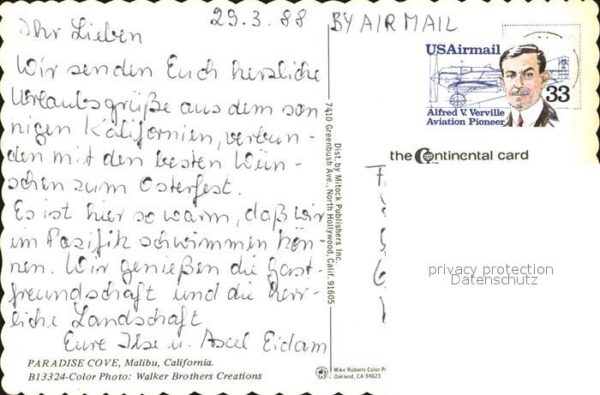 29.3.88
BY AIR MAIL
Ihr Lieben
Wir senden Euch herzliche
Urlaubsgrüße aus dem son-
nigen Kalifornien, verbun-
den mit den besten Wün-
schen zum Osterfest.
Es ist hier so warm, daß wir
im Pazifik schwimmen kön-
nen. Wir genießen die Gast-
freundschaft und die herr-
liche Landschaft
Eure Ilse u. Axel Eidam
PARADISE COVE, Malibu, California.
B13324-Color Photo: Walker Brothers Creations
Dist. by Mitock Publishers Inc.
7410 Greenbush Ave., North Hollywood, Calif. 91605
USAirmail
33
Alfred V. Verville
Aviation Pioneer
the Continental card
privacy protection
Datenschutz
Mike Roberts Color P
Oakland, CA 94623